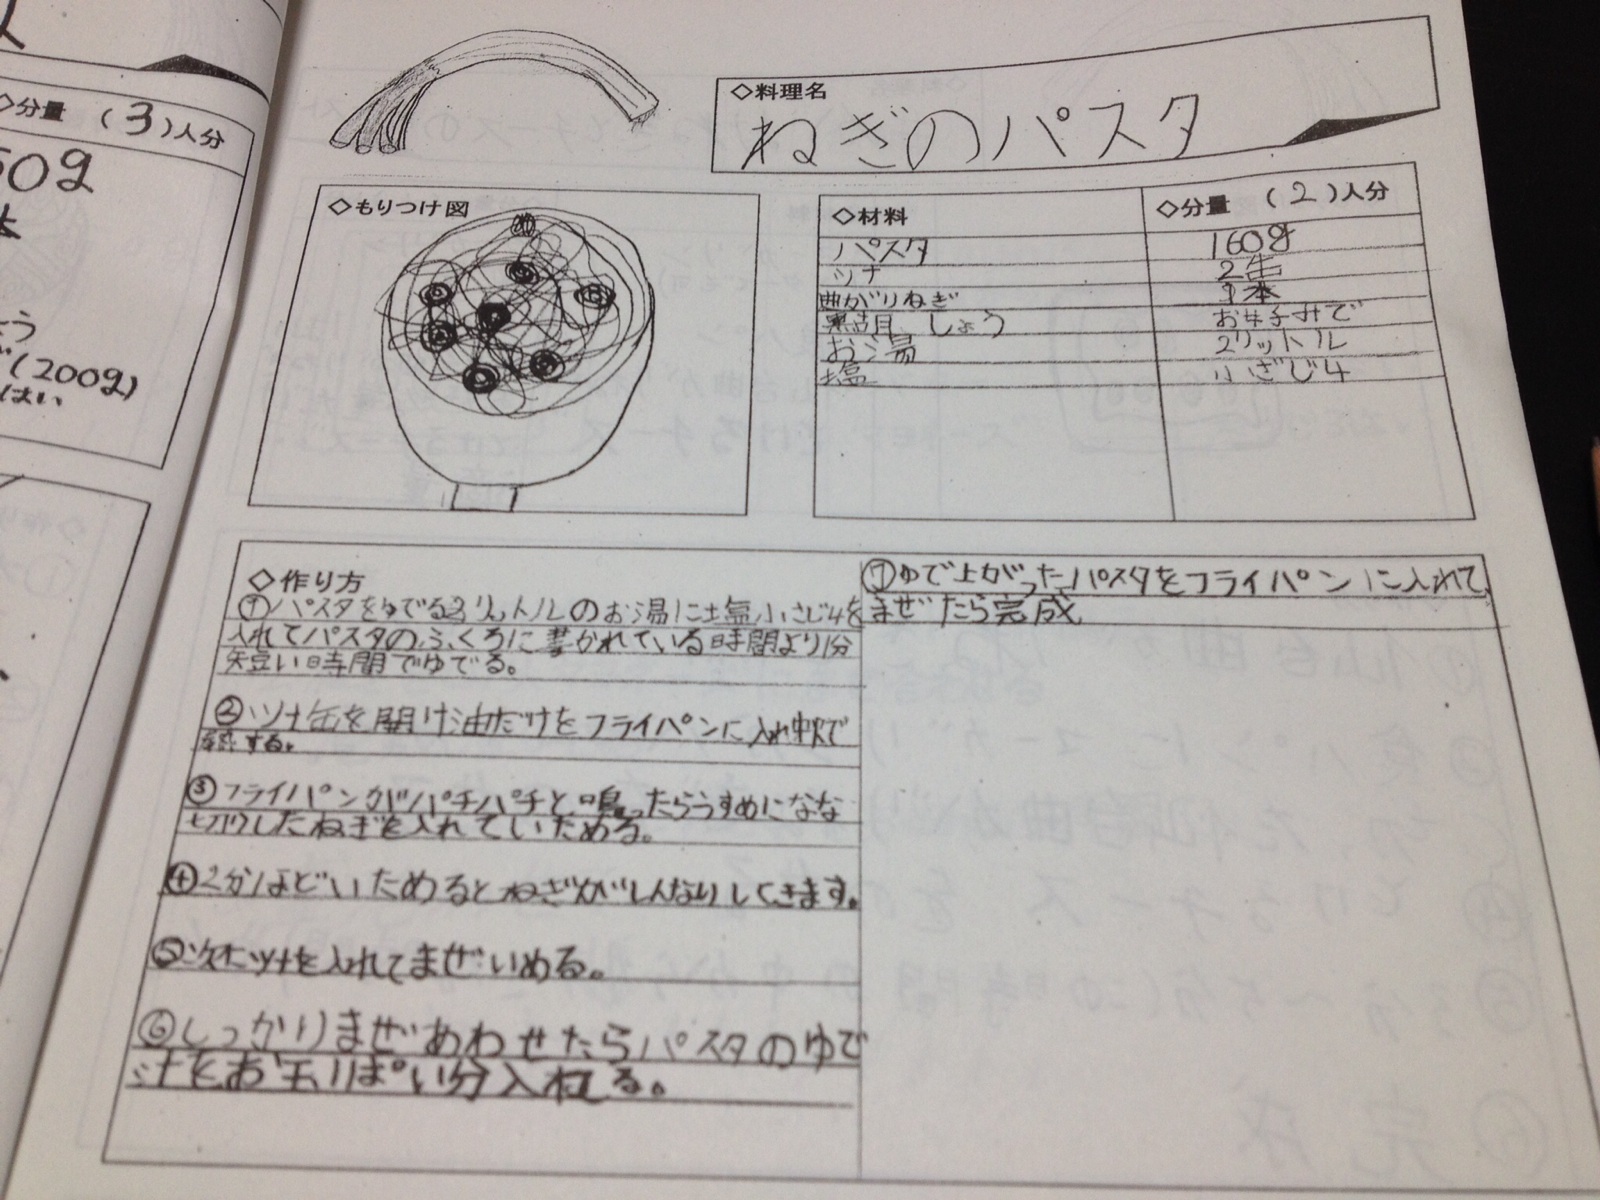 ◇分量 (3)人分
50g
本
う
(200g)
はい
◇料理名
ねぎのパスタ
◇もりつけ図
◇材料
◇分量 (2)人分
パスタ 160g
ツナ 2缶
曲がりねぎ 1本
黒胡しょう お好みで
お湯 2リットル
塩 小さじ4
◇作り方
①パスタをゆでる2リットルのお湯に塩小さじ4を
入れてパスタのふくろに書かれている時間より1分
短い時間でゆでる。
②ツナ缶を開け油だけをフライパンに入れ中火で
熱する。
③フライパンがパチパチと鳴ったらうすめになな
切りしたねぎを入れていためる。
④2分ほどいためるとねぎがしんなりしてきます。
⑤次にツナを入れてまぜいめる。
⑥しっかりまぜあわせたらパスタのゆで
汁をお玉1ぱい分入れる。
⑦ゆで上がったパスタをフライパンに入れて
まぜたら完成